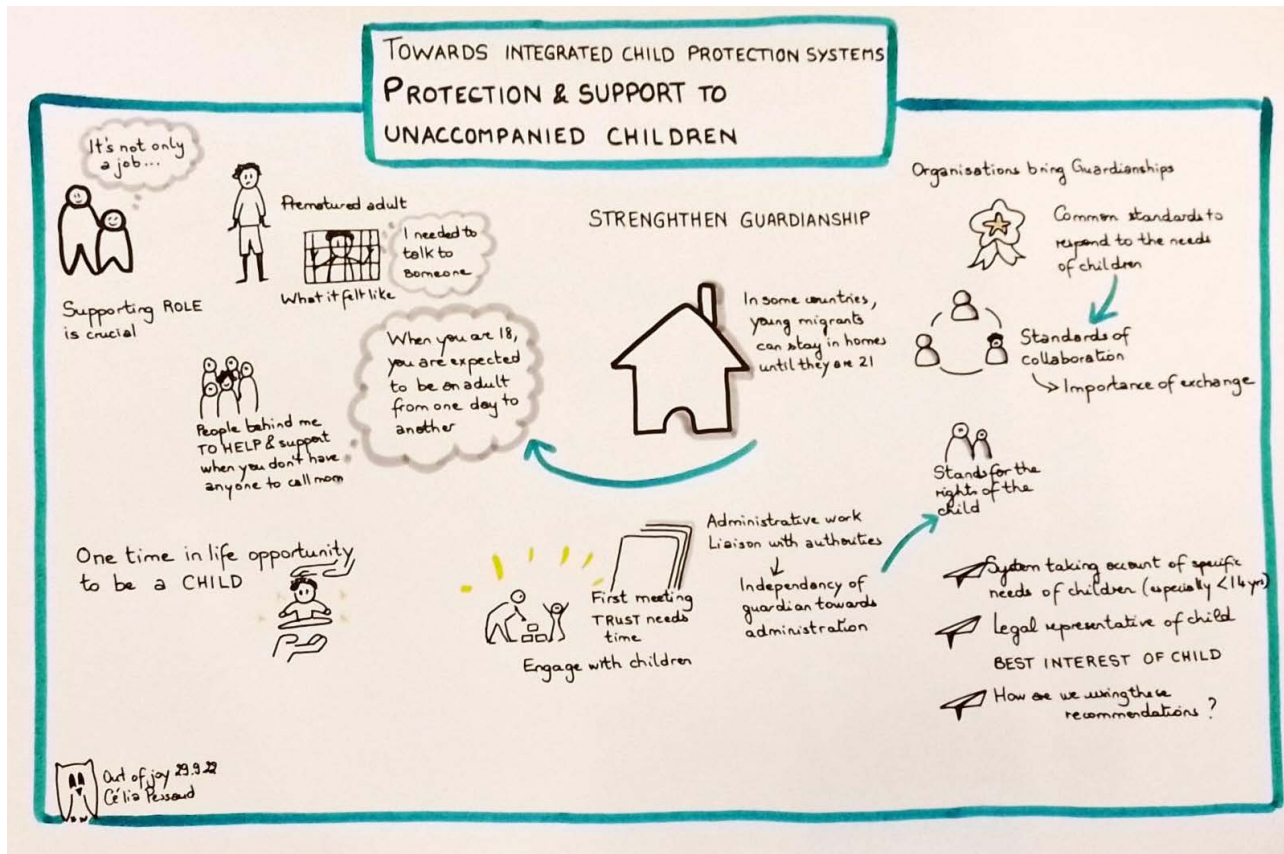 TOWARDS INTEGRATED CHILD PROTECTION SYSTEMS
PROTECTION & SUPPORT TO
UNACCOMPANIED CHILDREN
It's not only
a job...
Supporting ROLE
is crucial
Prematured adult
I needed to
talk to
someone
What it felt like
When you are 18,
you are expected
to be an adult
from one day to
another
People behind me
TO HELP & support
when you don't have
anyone to call mom
One time in life opportunity
to be a CHILD
STRENGHTHEN GUARDIANSHIP
In some countries,
young migrants
can stay in homes
until they are 21
First meeting
TRUST needs
time
Engage with children
Administrative work
Liaison with authorities
Independency of
guardian towards
administration
Organisations bring Guardianships
Common standards to
respond to the needs
of children
Standards of
collaboration
Importance of exchange
Stands for the
rights of the
child
System taking account of specific
needs of children (especially <14 yrs)
Legal representative of child
BEST INTEREST OF CHILD
How are we using these
recommendations?
Out of joy 29.9.22
Célia